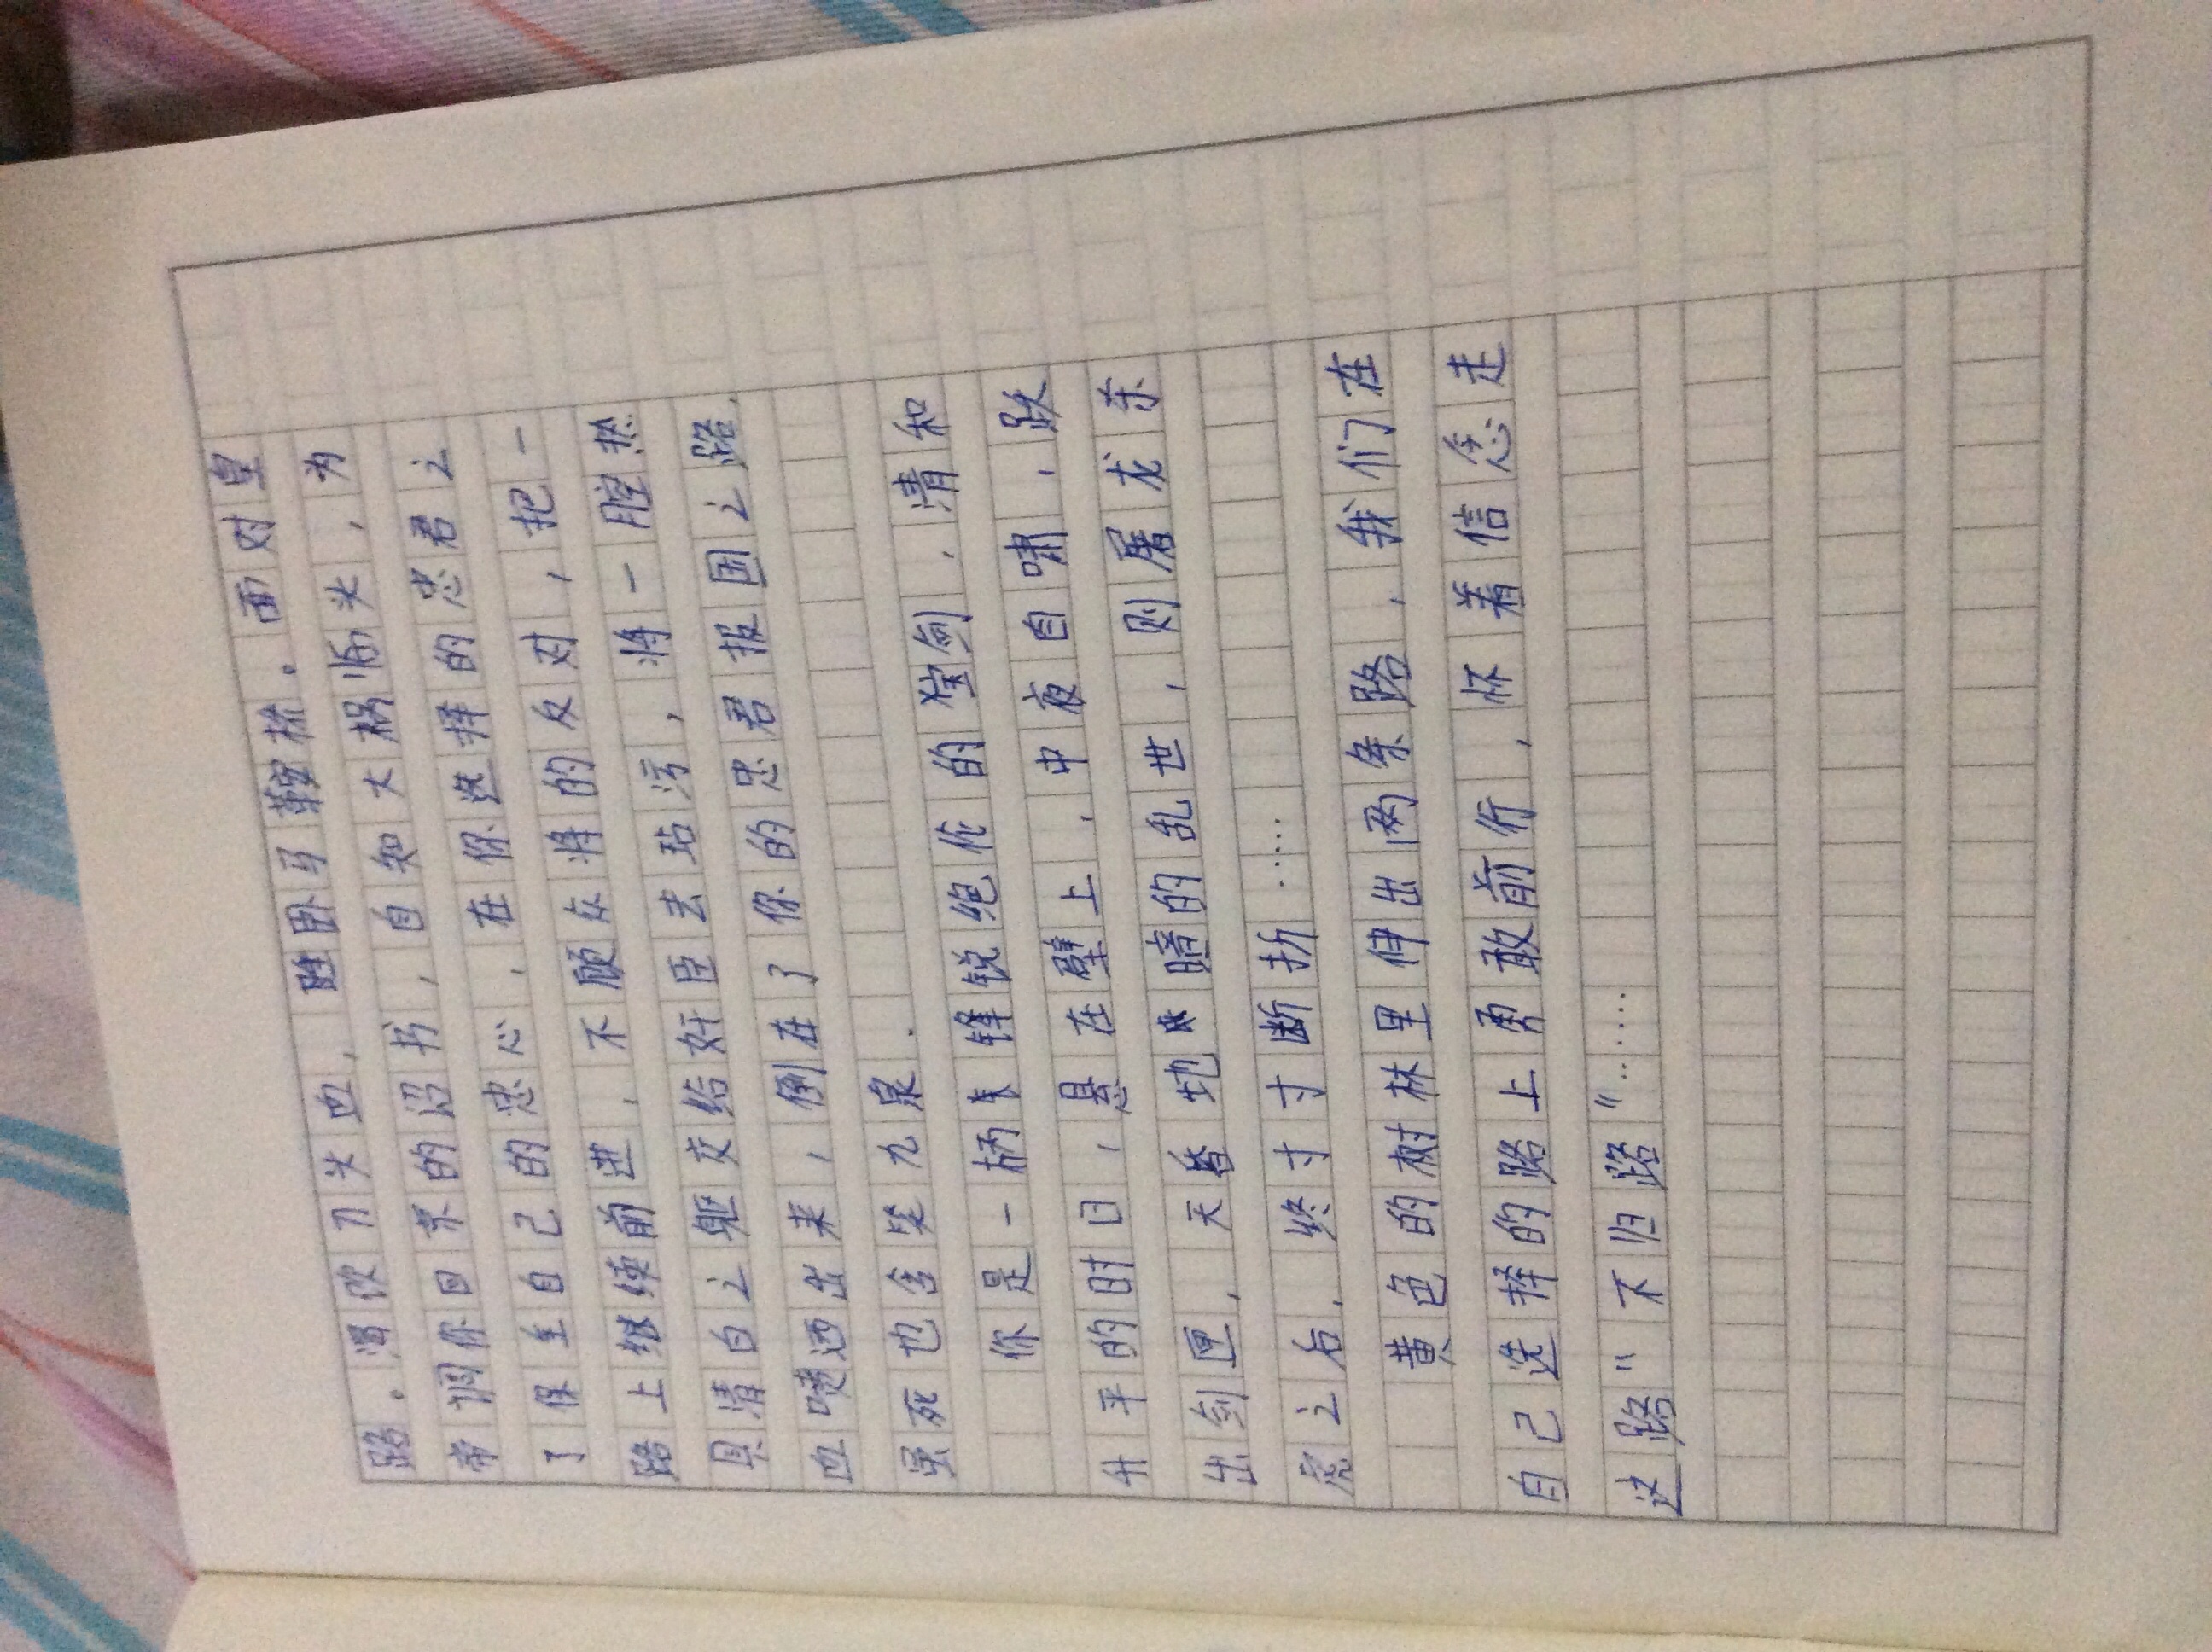 路。渴饮刀头血，睡卧马鞍桥。面对皇
帝调你回京的诏书，自知大祸临头，为
了保全自己的忠心，在你选择的忠君之
路上继续前进，不顾众将的反对，把一
具清白之躯交给奸臣去玷污，将一腔热
血喷洒出来，倒在了你的忠君报国之路，
虽死也含笑九泉．
你是一柄锋锐绝伦的宝剑，清和
升平的时日，悬在壁上，中夜自啸，跃
出剑匣，天昏地暗的乱世，则屠龙杀
虎之后，终寸寸断折……
黄色的树林里伸出两条路，我们在
自己选择的路上勇敢前行，怀着信念走
这路“不归路”……